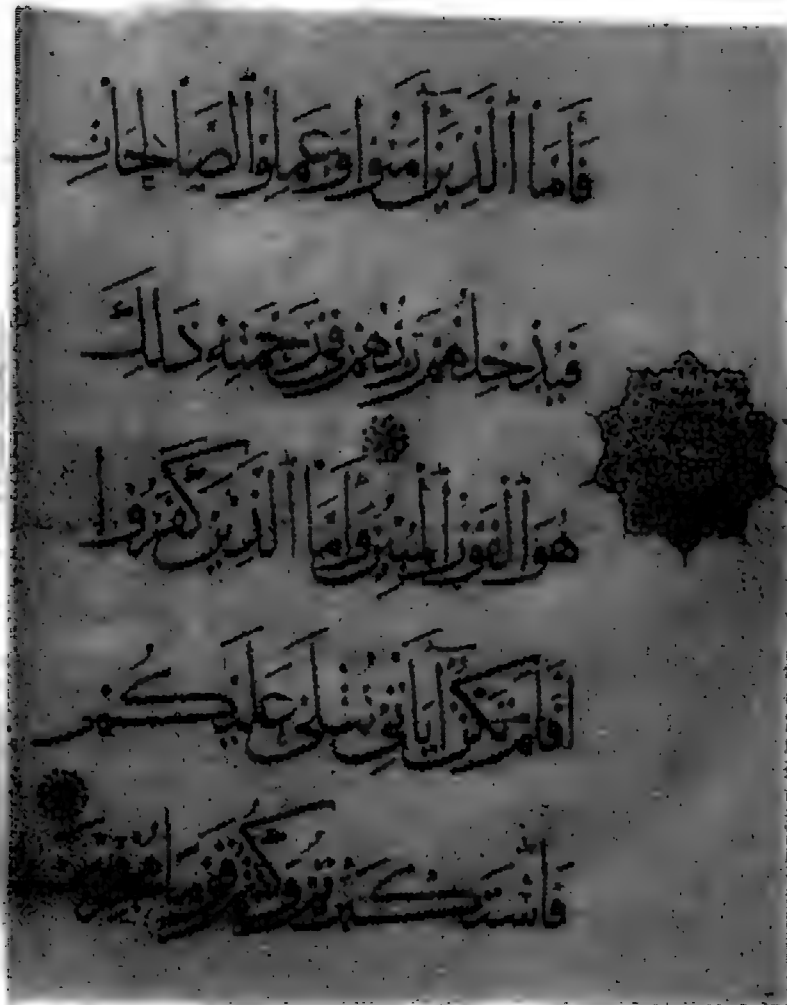 فَأَمَّا الَّذِينَ آمَنُوا وَعَمِلُوا الصَّالِحَاتِ
فَيُدْخِلُهُمْ رَبُّهُمْ فِي رَحْمَتِهِ ذَلِكَ
هُوَ الْفَوْزُ الْمُبِينُ وَأَمَّا الَّذِينَ كَفَرُوا
أَفَلَمْ تَكُنْ آيَاتِي تُتْلَى عَلَيْكُمْ
فَاسْتَكْبَرْتُمْ وَكُنْتُمْ قَوْمًا